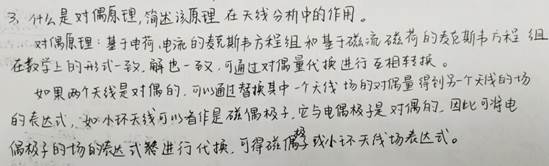 3. 什么是对偶原理,简述该原理在天线分析中的作用。
对偶原理:基于电荷,电流的麦克斯韦方程组和基于磁流磁荷的麦克斯韦方程组
在数学上的形式一致,解也一致,可通过对偶量代换进行互相转换。
如果两个天线是对偶的,可以通过替换其中一个天线场的对偶量得到另一个天线的场
的表达式,如小环天线可以看作是磁偶极子,它与电偶极子是对偶的,因此可将电
偶极子的场的表达式进行代换,可得磁偶极子或小环天线场表达式。